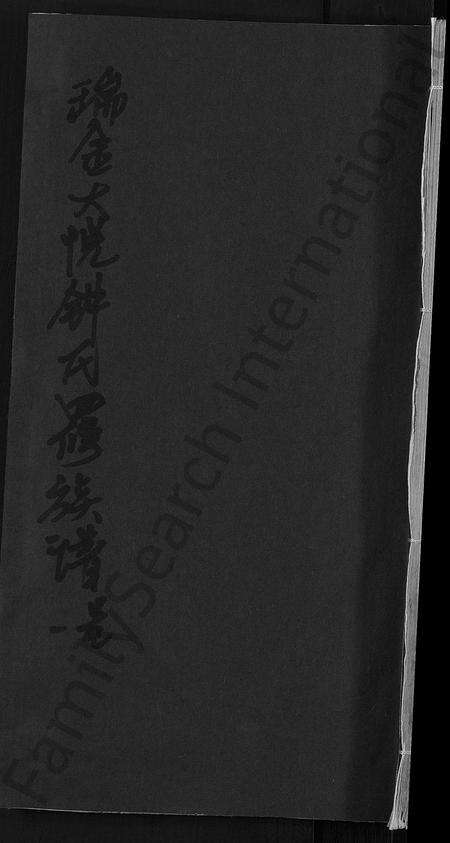 瑞金大悦鍾氏四修族譜
一卷
FamilySearch International